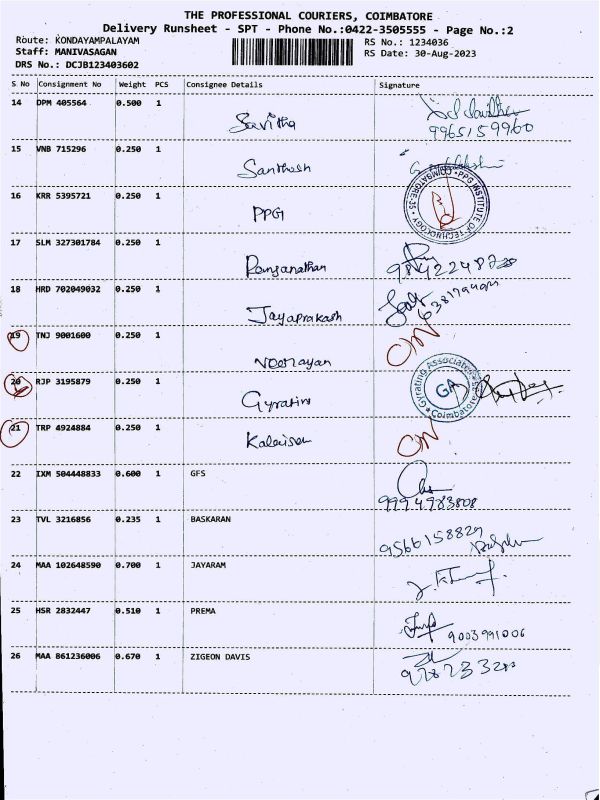 THE PROFESSIONAL COURIERS, COIMBATORE
Delivery Runsheet - SPT - Phone No.:0422-3505555 - Page No.:2
Route: KONDAYAMPALAYAM RS No.: 1234036
Staff: MANIVASAGAN RS Date: 30-Aug-2023
DRS No.: DCJB123403602
S No Consignment No Weight PCS Consignee Details Signature
14 DPM 405564 0.500 1
Savitha
9965159960
15 VNB 715296 0.250 1
Santhosh
16 KRR 5395721 0.250 1
PPG
PPG INSTITUTE OF TECHNOLOGY • COIMBATORE-35 •
17 SLM 327301784 0.250 1
Ranganathan
18 HRD 702049032 0.250 1
Jayaprakash
19 TNJ 9001600 0.250 1
20 RJP 3195879 0.250 1
Gyrating Associates Coimbatore
GA
21 TRP 4924884 0.250 1
22 IXM 504448833 0.600 1 GFS
9994983808
23 TVL 3216856 0.235 1 BASKARAN
9566158829
24 MAA 102648590 0.700 1 JAYARAM
25 HSR 2832447 0.510 1 PREMA
9003991006
26 MAA 861236006 0.670 1 ZIGEON DAVIS